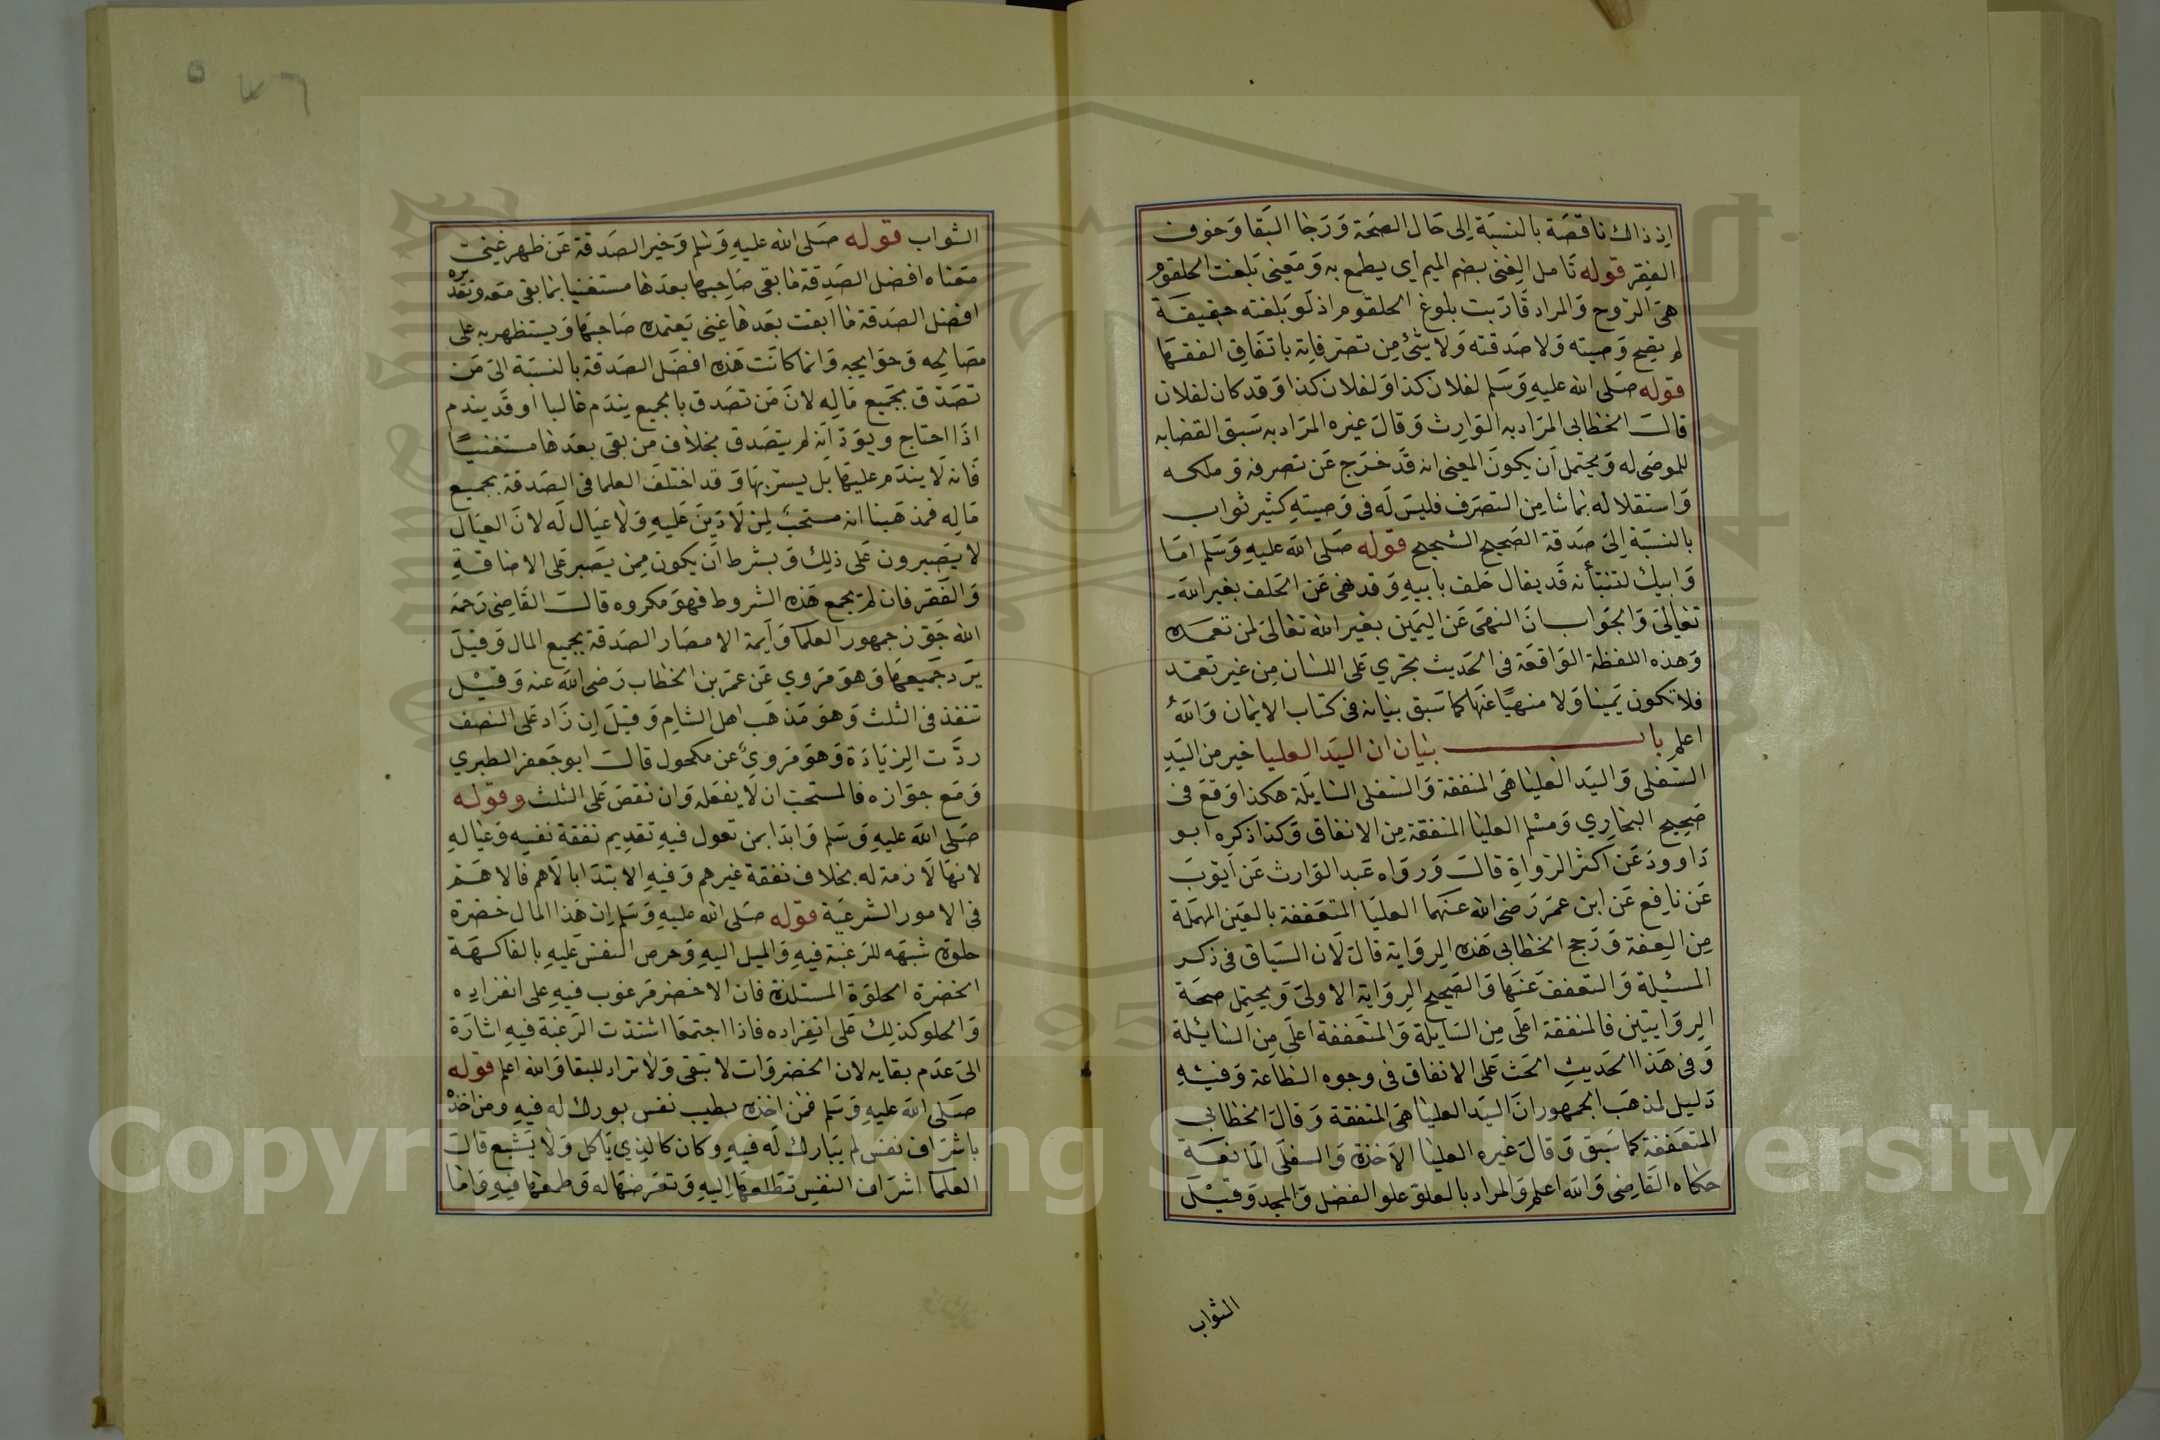 اذ ذاك ناقصة بالنسبة الى حال الصحة ورجا البقا وخوف
الفقر قوله تامل الغنى بضم الميم اي يطمع به ومعنى بلغت الحلقوم
هى الروح والمراد قاربت بلوغ الحلقوم اذ لو بلغته حقيقة
لم يصح وصيته ولا صدقته ولا شئ من تصرفاته باتفاق الفقها
قوله صلى الله عليه وسلم لفلان كذا ولفلان كذا وقد كان لفلان
قالت الخطابى المراد به الوارث وقال غيره المراد به سبق القضا به
للموصى له ويحتمل ان يكون المعنى انه قد خرج عن تصرفه وملكه
واستقلاله بما شا من التصرف فليس له فى وصيته كثير ثواب
بالنسبة الى صدقة الصحيح الشحيح قوله صلى الله عليه وسلم اما
وابيك لتنبأنه قد يقال حلف بابيه وقد نهى عن الحلف بغير الله
تعالى والجواب ان النهى عن اليمين بغير الله تعالى لمن تعمده
وهذه اللفظة الواقعة فى الحديث تجري على اللسان من غير تعمد
فلا تكون يمينا ولا منهيا عنها كما سبق بيانه فى كتاب الايمان والله
اعلم باب بيان ان اليد العليا خير من اليد
السفلى واليد العليا هى المنفقة والسفلى السايلة هكذا وقع فى
صحيح البخاري ومسلم العليا المنفقة من الانفاق وكذا ذكره ابو
داوود عن اكثر الرواة قالت ورواه عبد الوارث عن ايوب
عن نافع عن ابن عمر رضى الله عنهما العليا المتعففة بالعين المهملة
من العفة ورجح الخطابى هذه الرواية قال لان السياق فى ذكر
المسئيلة والتعفف عنها والصحيح الرواية الاولى ويحتمل صحة
الروايتين فالمنفقة اعلى من السايلة والمتعففة اعلى من السايئلة
وفى هذا الحديث الحث على الانفاق فى وجوه الطاعة وفيه
دليل لمذهب الجمهور ان اليد العليا هى المنفقة وقال الخطابى
المتعففة كما سبق وقال غيره العليا الآخذة والسفلى المانعة
حكاه القاضى والله اعلم والمراد بالعلو علو الفضل والمجد وقيل
الثواب
الثواب قوله صلى الله عليه وسلم وخير الصدقة عن ظهر غنى
معناه افضل الصدقة ما بقى صاحبها بعدها مستغنيا بما بقى معه وتقديره
افضل الصدقة ما ابقت بعدها غنى يعتمده صاحبها ويستظهر به على
مصالحه وحوايجه وانما كانت هذه افضل الصدقة بالنسبة الى من
تصدق بجميع ماله لان من تصدق بالجميع يندم غالبا او قد يندم
اذا احتاج ويود انه لم يتصدق بخلاف من بقى بعدها مستغنيا
فانه لا يندم عليها بل يسر بها وقد اختلف العلما فى الصدقة بجميع
ماله فمذهبنا انه مستحب لمن لا دين عليه ولا عيال له لان العيال
لا يصبرون على ذلك وبشرط ان يكون ممن يصبر على الاضاقة
والفقر فان لم يجمع هذه الشروط فهو مكروه قالت القاضى رحمه
الله جوز جمهور العلما وايمة الامصار الصدقة بجميع المال وقيل
يرد جميعها وهو مروي عن عمر بن الخطاب رضى الله عنه وقيل
تنفذ فى الثلث وهو مذهب اهل الشام وقيل ان زاد على النصف
ردت الزيادة وهو مروى عن مكحول قالت ابو جعفر الطبري
ومع جوازه فالمستحب ان لا يفعله وان نقص على الثلث وقوله
صلى الله عليه وسلم وابدا بمن تعول فيه تقديم نفقة نفسه وعياله
لانها لازمة له بخلاف نفقة غيرهم وفيه الابتدا بالاهم فالاهم
فى الامور الشرعية قوله صلى الله عليه وسلم ان هذا المال خضرة
حلوة شبهه للرغبة فيه والميل اليه وحرص النفس عليه بالفاكهة
الخضرة الحلوة المستلذة فان الاخضر مرغوب فيه على انفراده
والحلو كذلك على انفراده فاذا اجتمعا اشتدت الرغبة فيه اشارة
الى عدم بقايه لان الخضروات لا تبقى ولا تراد للبقا والله اعلم قوله
صلى الله عليه وسلم فمن اخذه بطيب نفس بورك له فيه ومن اخذه
باشراف نفس لم يبارك له فيه وكان كالذي ياكل ولا يشبع قالت
العلما اشراف النفس تطلعها اليه وتعرضها له وطمعها فيه واما
Copyright © King Saud University